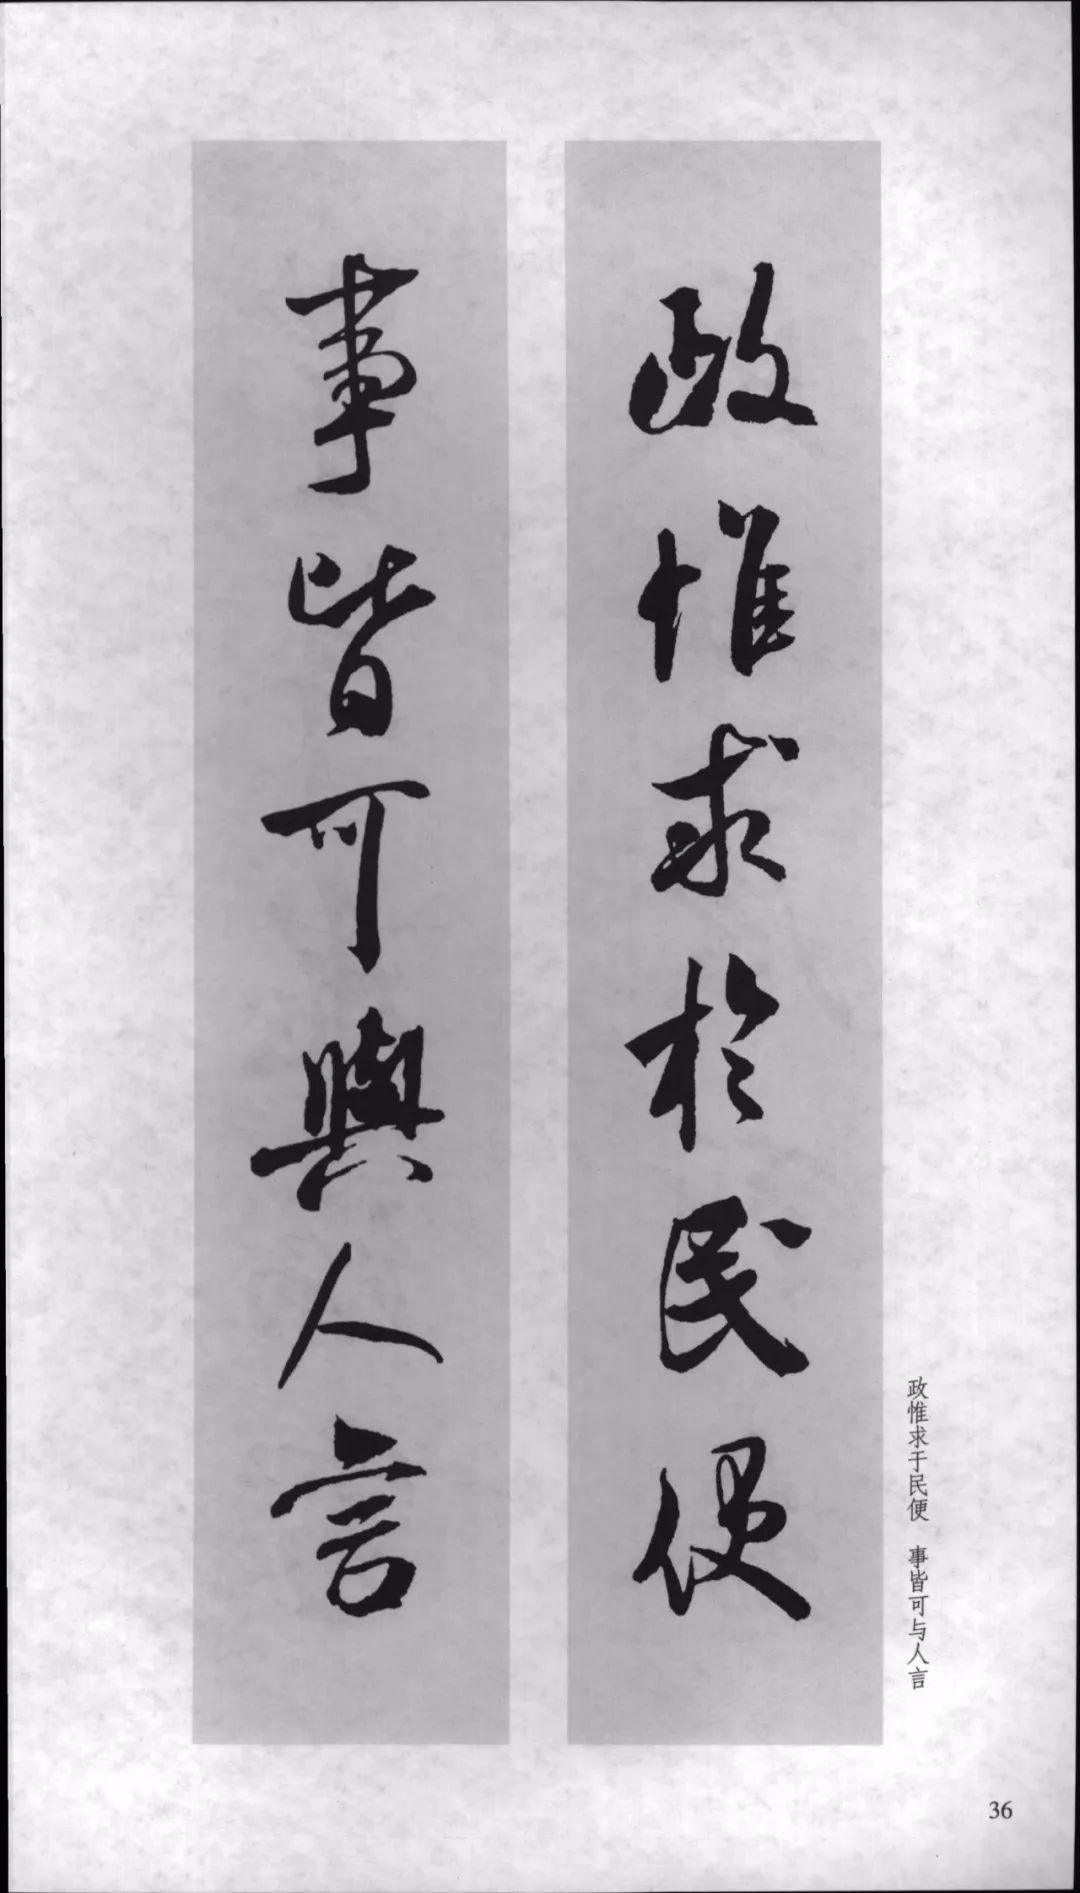 政惟求於民便
事皆可與人言
政惟求于民便 事皆可与人言
36